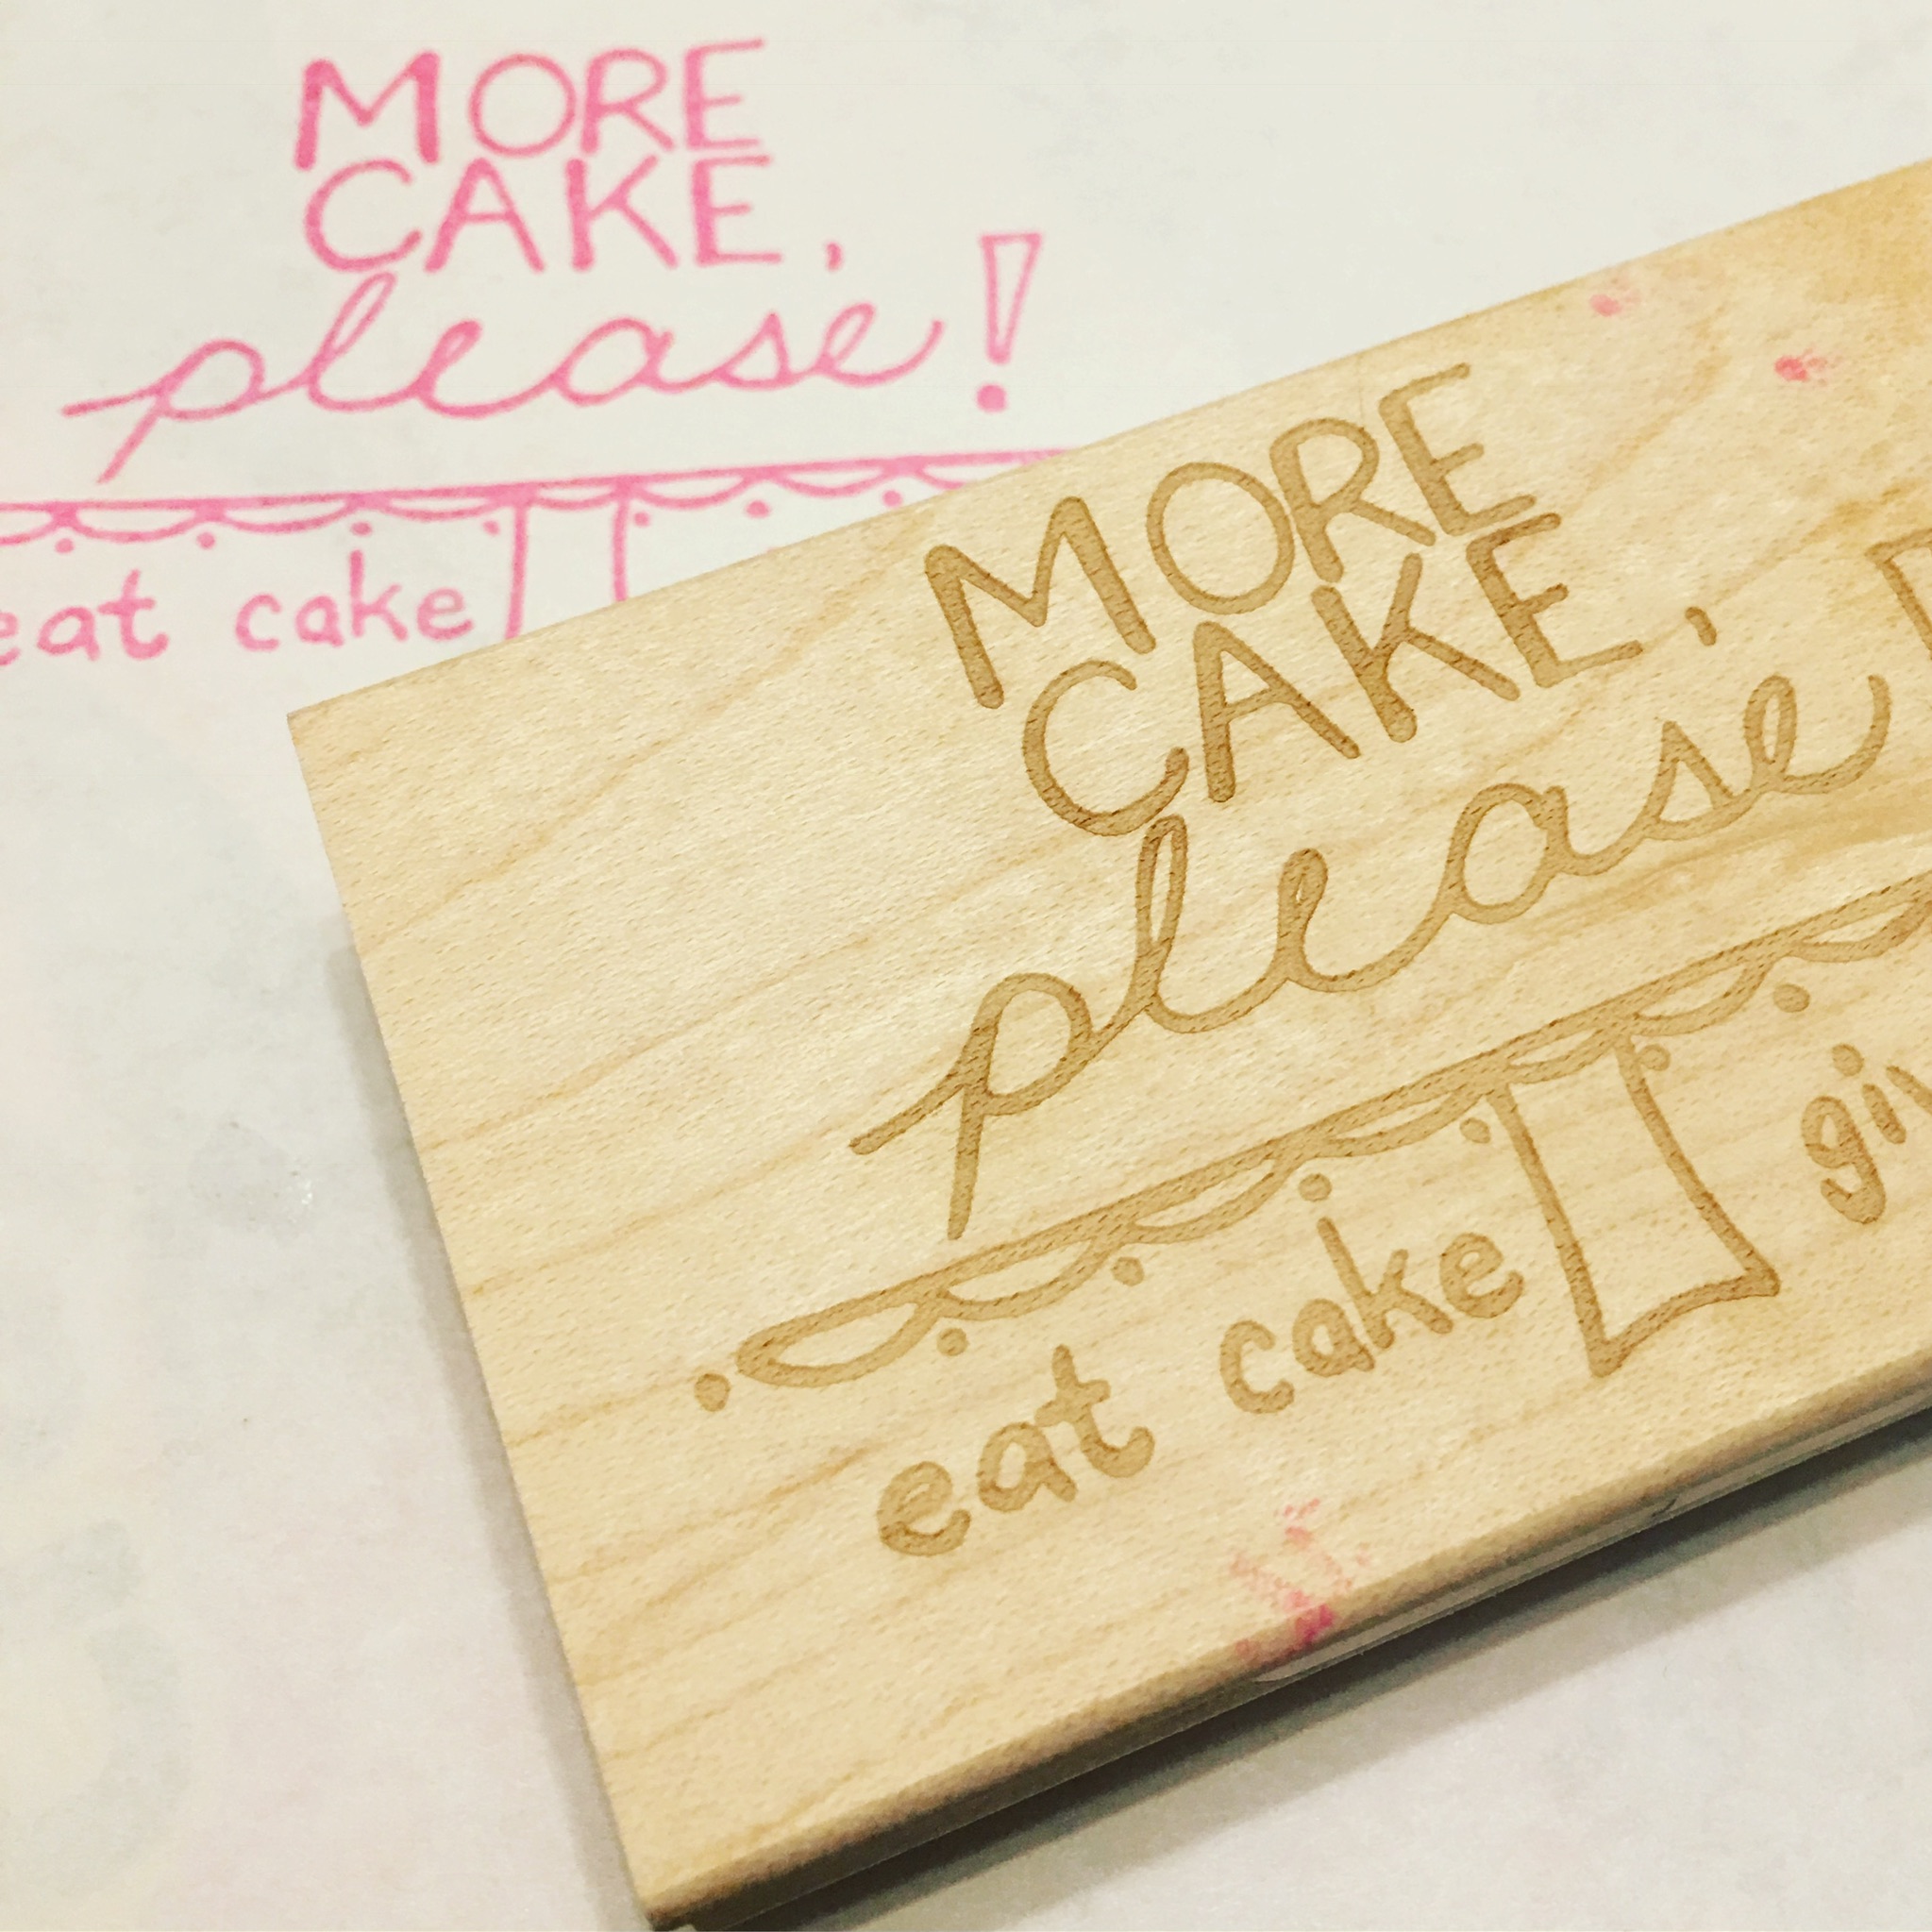 MORE
CAKE,
please!
eat cake
MORE
CAKE,
please
eat cake